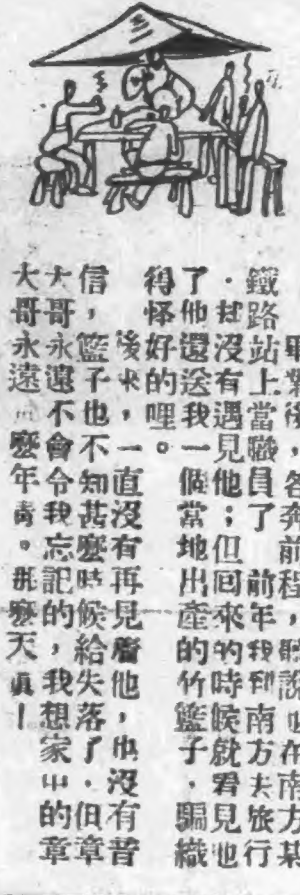 畢業後，各奔前程，聽說他在南方某
鐵路站上當職員了　前年我到南方去旅行
．並沒有遇見他；但回來的時候就看見他
了他還送我一個當地出產的竹籃子．騙織
得怪好的哩。
後來，一直沒有再見着他，也沒有音
信，籃子也不知甚麼時候給失落了．但章
大哥永遠不會令我忘記的，我想家中的章
大哥永遠　麼年青。那麼天真！